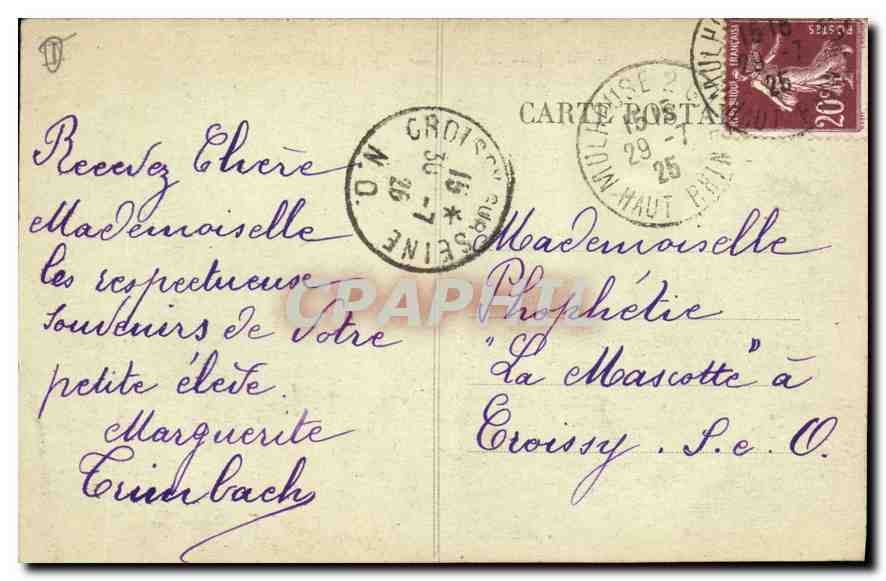 CARTE POSTALE
Recevez Chère
Mademoiselle
les respectueuse
souvenirs de Votre
petite élève.
Marguerite
Trimbach
Mademoiselle
Phophétie
"La Mascotte" à
Croissy. S. e. O.
CROISSY SUR SEINE
15 *
30 -7
25
MULHOUSE 2
15 15
29 -7
25
HAUT RHIN
REPUBLIQUE FRANÇAISE
POSTES
20c
CPAPHIL